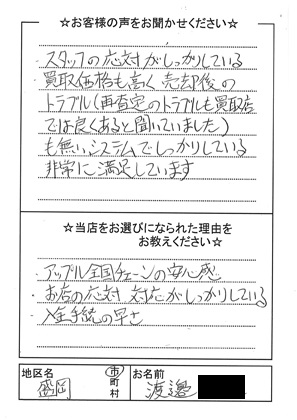 ☆お客様の声をお聞かせください☆
・スタッフの応対がしっかりしている
・買取価格も高く売却後の
トラブル(再査定のトラブルも買取店
では良くあると聞いていました)
も無いシステムでしっかりしている
非常に満足しています
☆当店をお選びになられた理由を
お教えください☆
・アップル全国チェーンの安心感
・お店の応対 対応がしっかりしている
・入金手続の早さ
地区名
盛岡
市
町
村
お名前
渡邉